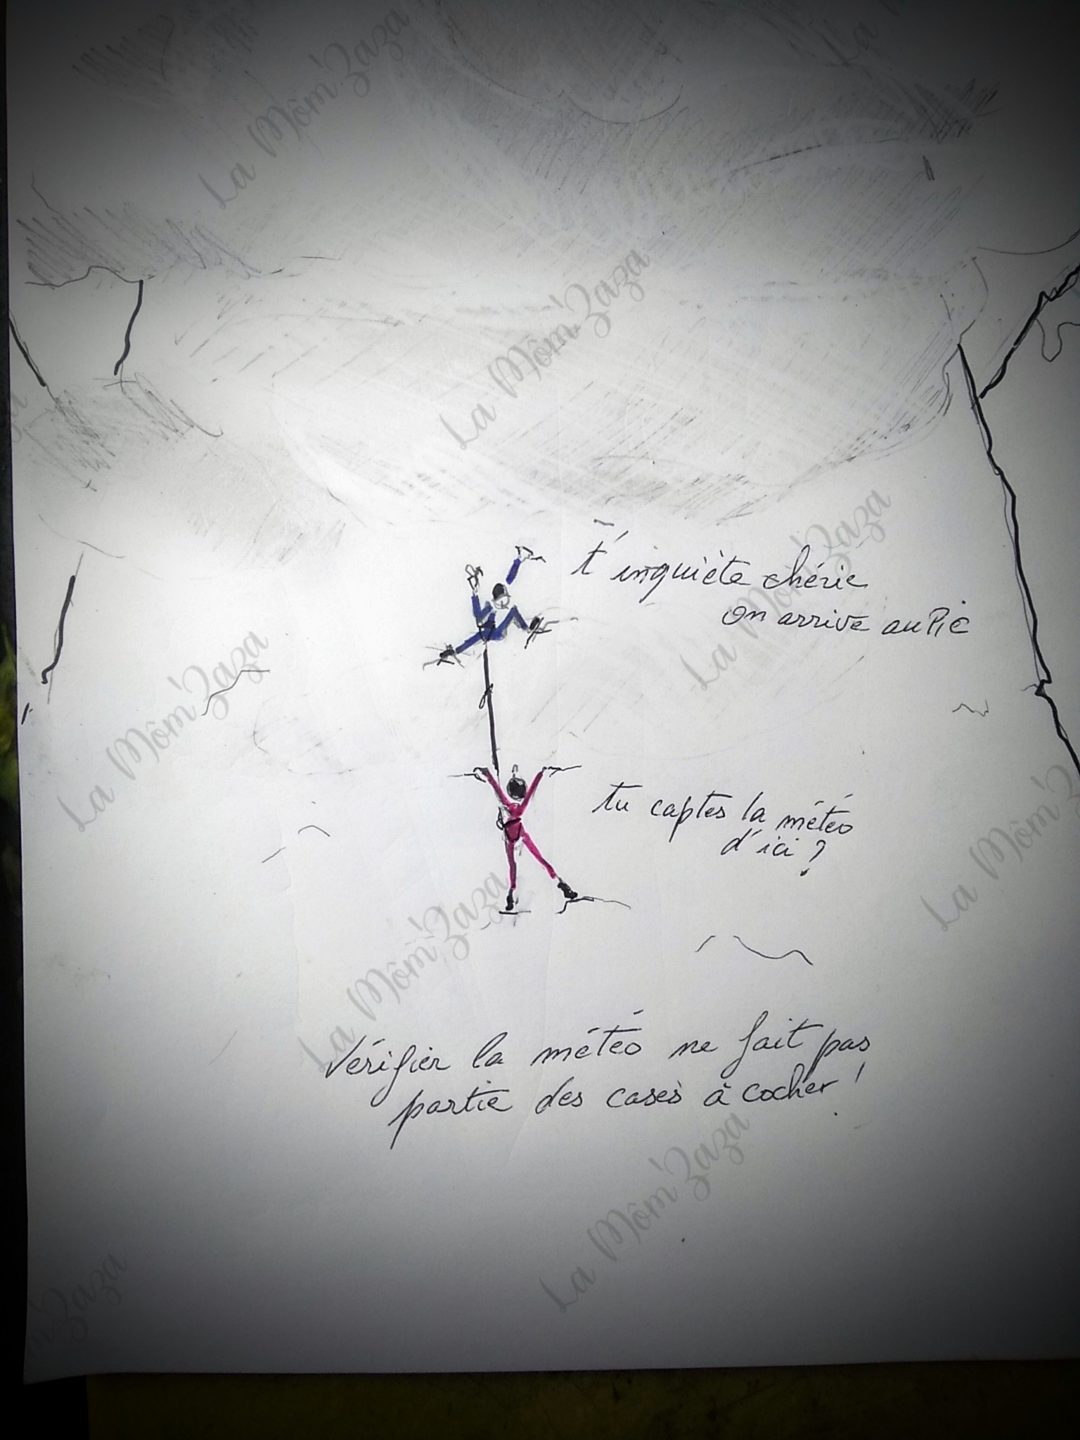 La Môm'Zaza
La Môm'Zaza
La Môm'Zaza
t'inquiète chérie
on arrive au Pic
La Môm'Zaza
La Môm'Zaza
tu captes la météo
d'ici ?
La Môm'Zaza
La Môm'Zaza
Vérifier la météo ne fait pas
partie des cases à cocher !
La Môm'Zaza